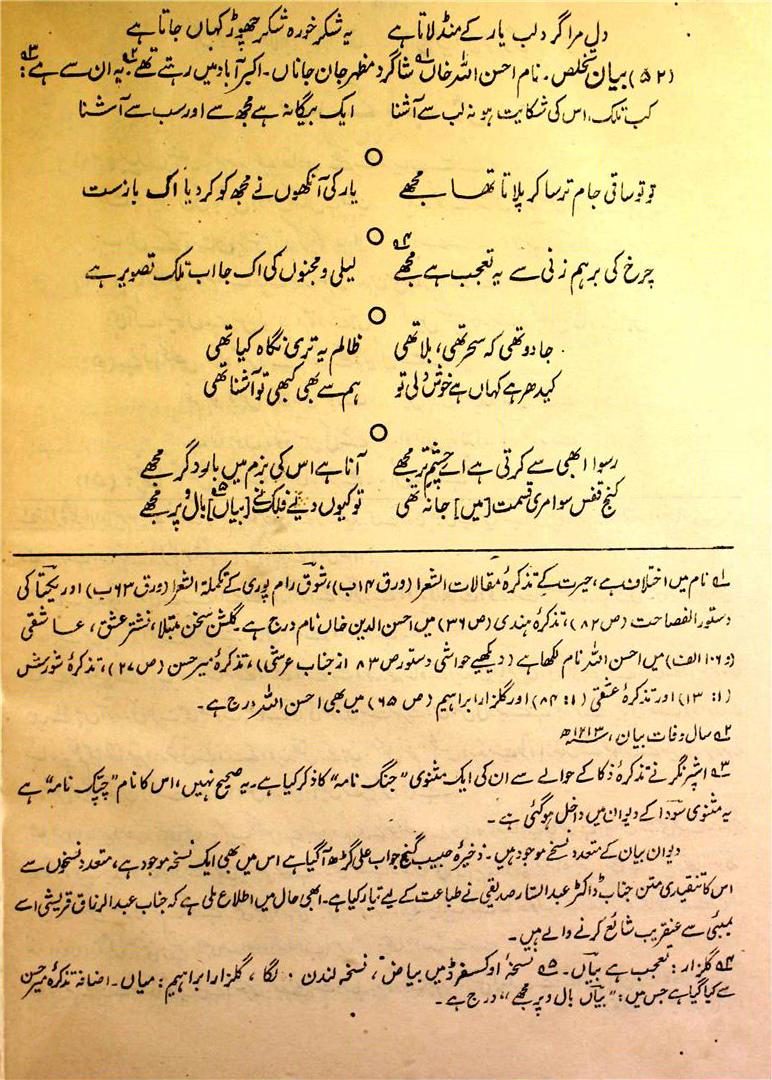 دل مرا گرد لب یار کے منڈلاتا ہے یہ شکر خورہ شکر چھوڑ کہاں جاتا ہے
(۵۲) بیان تخلص۔ نام احسن اللہ خاں ۱؎ شاگرد مظہر جان جاناں۔ اکبر آباد میں رہتے تھے ۲؎ یہ ان سے ہے ۳؎:
کب تلک، اس کی شکایت ہو نہ لب سے آشنا ایک بیگانہ ہے مجھ سے اور سب سے آشنا
تو تو ساقی جام ترسا کر پلاتا تھا مجھے یار کی آنکھوں نے مجھ کو کر دیا اک بار مست
چرخ کی برہم زنی سے یہ تعجب ہے مجھے ۴؎ لیلی و مجنوں کی اک جا اب تلک تصویر ہے
جادو تھی کہ سحر تھی، بلا تھی ظالم یہ تری نگاہ کیا تھی
کیدھر ہے کہاں ہے خوش دلی تو ہم سے بھی کبھی تو آشنا تھی
رسوا ابھی سے کرتی ہے اے چشم تر مجھے آنا ہے اس کی بزم میں بار دگر مجھے
کنج قفس سوا مری قسمت [میں] جا نہ تھی تو کیوں دیئے فلک نے [بیاں] ۵؎ بال و پر مجھے
۱؎ نام میں اختلاف ہے، حیرت کے تذکرۂ مقالات الشعرا (ورق ۱۴ ب)، شوق رام پوری کے تکملۃ الشعرا (ورق ۶۳ ب) اور یکتا کی
دستور الفصاحت (ص ۸۲)، تذکرۂ ہندی (ص ۳۶) میں احسن الدین خاں نام درج ہے۔ گلشن سخن مبتلا، نشتر عشق، عاشقی
(و ۱۰۶ الف) میں احسن اللہ نام لکھا ہے (دیکھیے حواشی دستور ص ۸۳ از جناب عرشی)، تذکرۂ میر حسن (ص ۲۷)، تذکرۂ شورش
(۱: ۱۳) اور تذکرۂ عشقی (۱: ۸۴) اور گلزار ابراہیم (ص ۶۵) میں بھی احسن اللہ درج ہے۔
۲؎ سال وفات بیان، ۱۲۱۳ھ
۳؎ اشپرنگر نے تذکرۂ ذکا کے حوالے سے ان کی ایک مثنوی "جنگ نامہ" کا ذکر کیا ہے۔ یہ صحیح نہیں، اس کا نام "چپک نامہ" ہے
یہ مثنوی سودا کے دیوان میں داخل ہو گئی ہے۔
دیوان بیان کے متعدد نسخے موجود ہیں۔ ذخیرۂ حبیب گنج جو اب علی گڑھ آ گیا ہے اس میں بھی ایک نسخہ موجود ہے، متعدد نسخوں سے
اس کا تنقیدی متن جناب ڈاکٹر عبد الستار صدیقی نے طباعت کے لیے تیار کیا ہے۔ ابھی حال میں اطلاع ملی ہے کہ جناب عبد الرزاق قریشی اسے
بمبئی سے عنقریب شائع کرنے والے ہیں۔
۴؎ گلزار: تعجب ہے بیاں۔ ۵؎ نسخۂ اوکسفرڈ میں بیاض، نسخہ لندن ۰ لگا، گلزار ابراہیم: میاں۔ اضافہ تذکرۂ میر حسن
سے کیا گیا ہے جس میں: "بیاں بال و پر مجھے" درج ہے۔